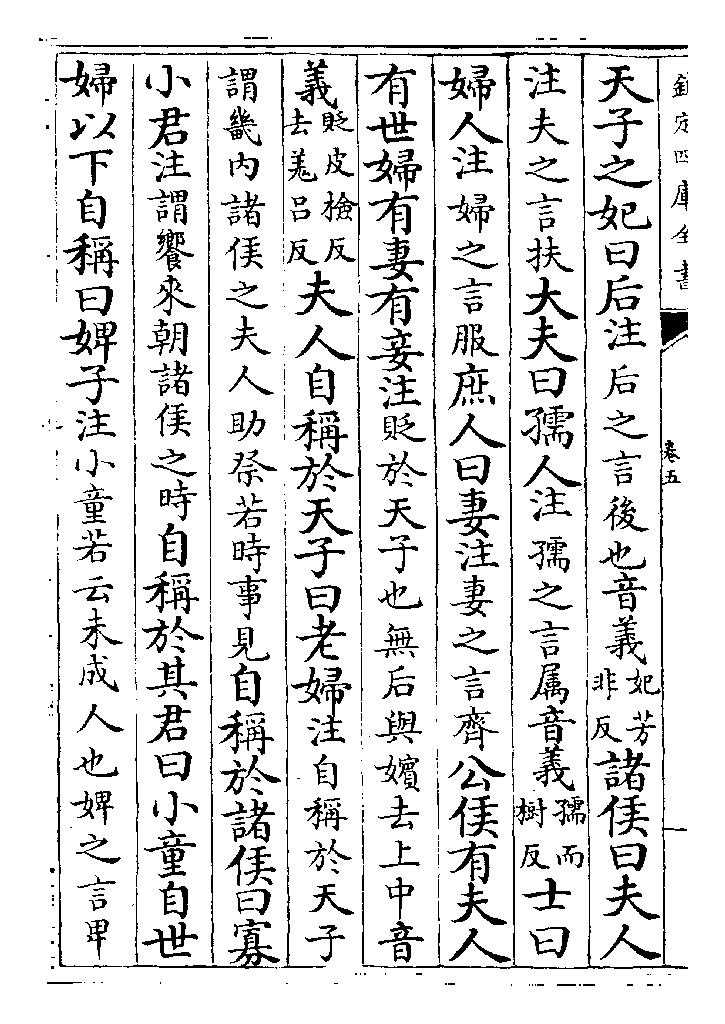 欽定四庫全書
卷五
天子之妃曰后注后之言後也音義妃芳非反諸侯曰夫人
注夫之言扶大夫曰孺人注孺之言属音義孺而樹反士曰
婦人注婦之言服庶人曰妻注妻之言齊公侯有夫人
有世婦有妻有妾注貶於天子也無后與嬪去上中音
義貶皮檢反去羌呂反夫人自稱於天子曰老婦注自稱於天子
謂畿内諸侯之夫人助祭若時事見自稱於諸侯曰寡
小君注謂饗來朝諸侯之時自稱於其君曰小童自世
婦以下自稱曰婢子注小童若云未成人也婢之言卑